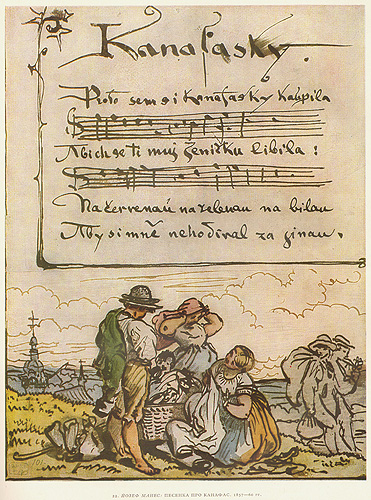 Kanafasky.
Proto sem si Kanafasky kaupila
Abich se ti muj Ženičku libila :
Na červenau na zelenau na bilau
Aby si mně nehodíval za ginau.
11. ЙОЗЕФ МАНЕС. ПЕСЕНКА ПРО КАНАФАС. 1857—62 гг.